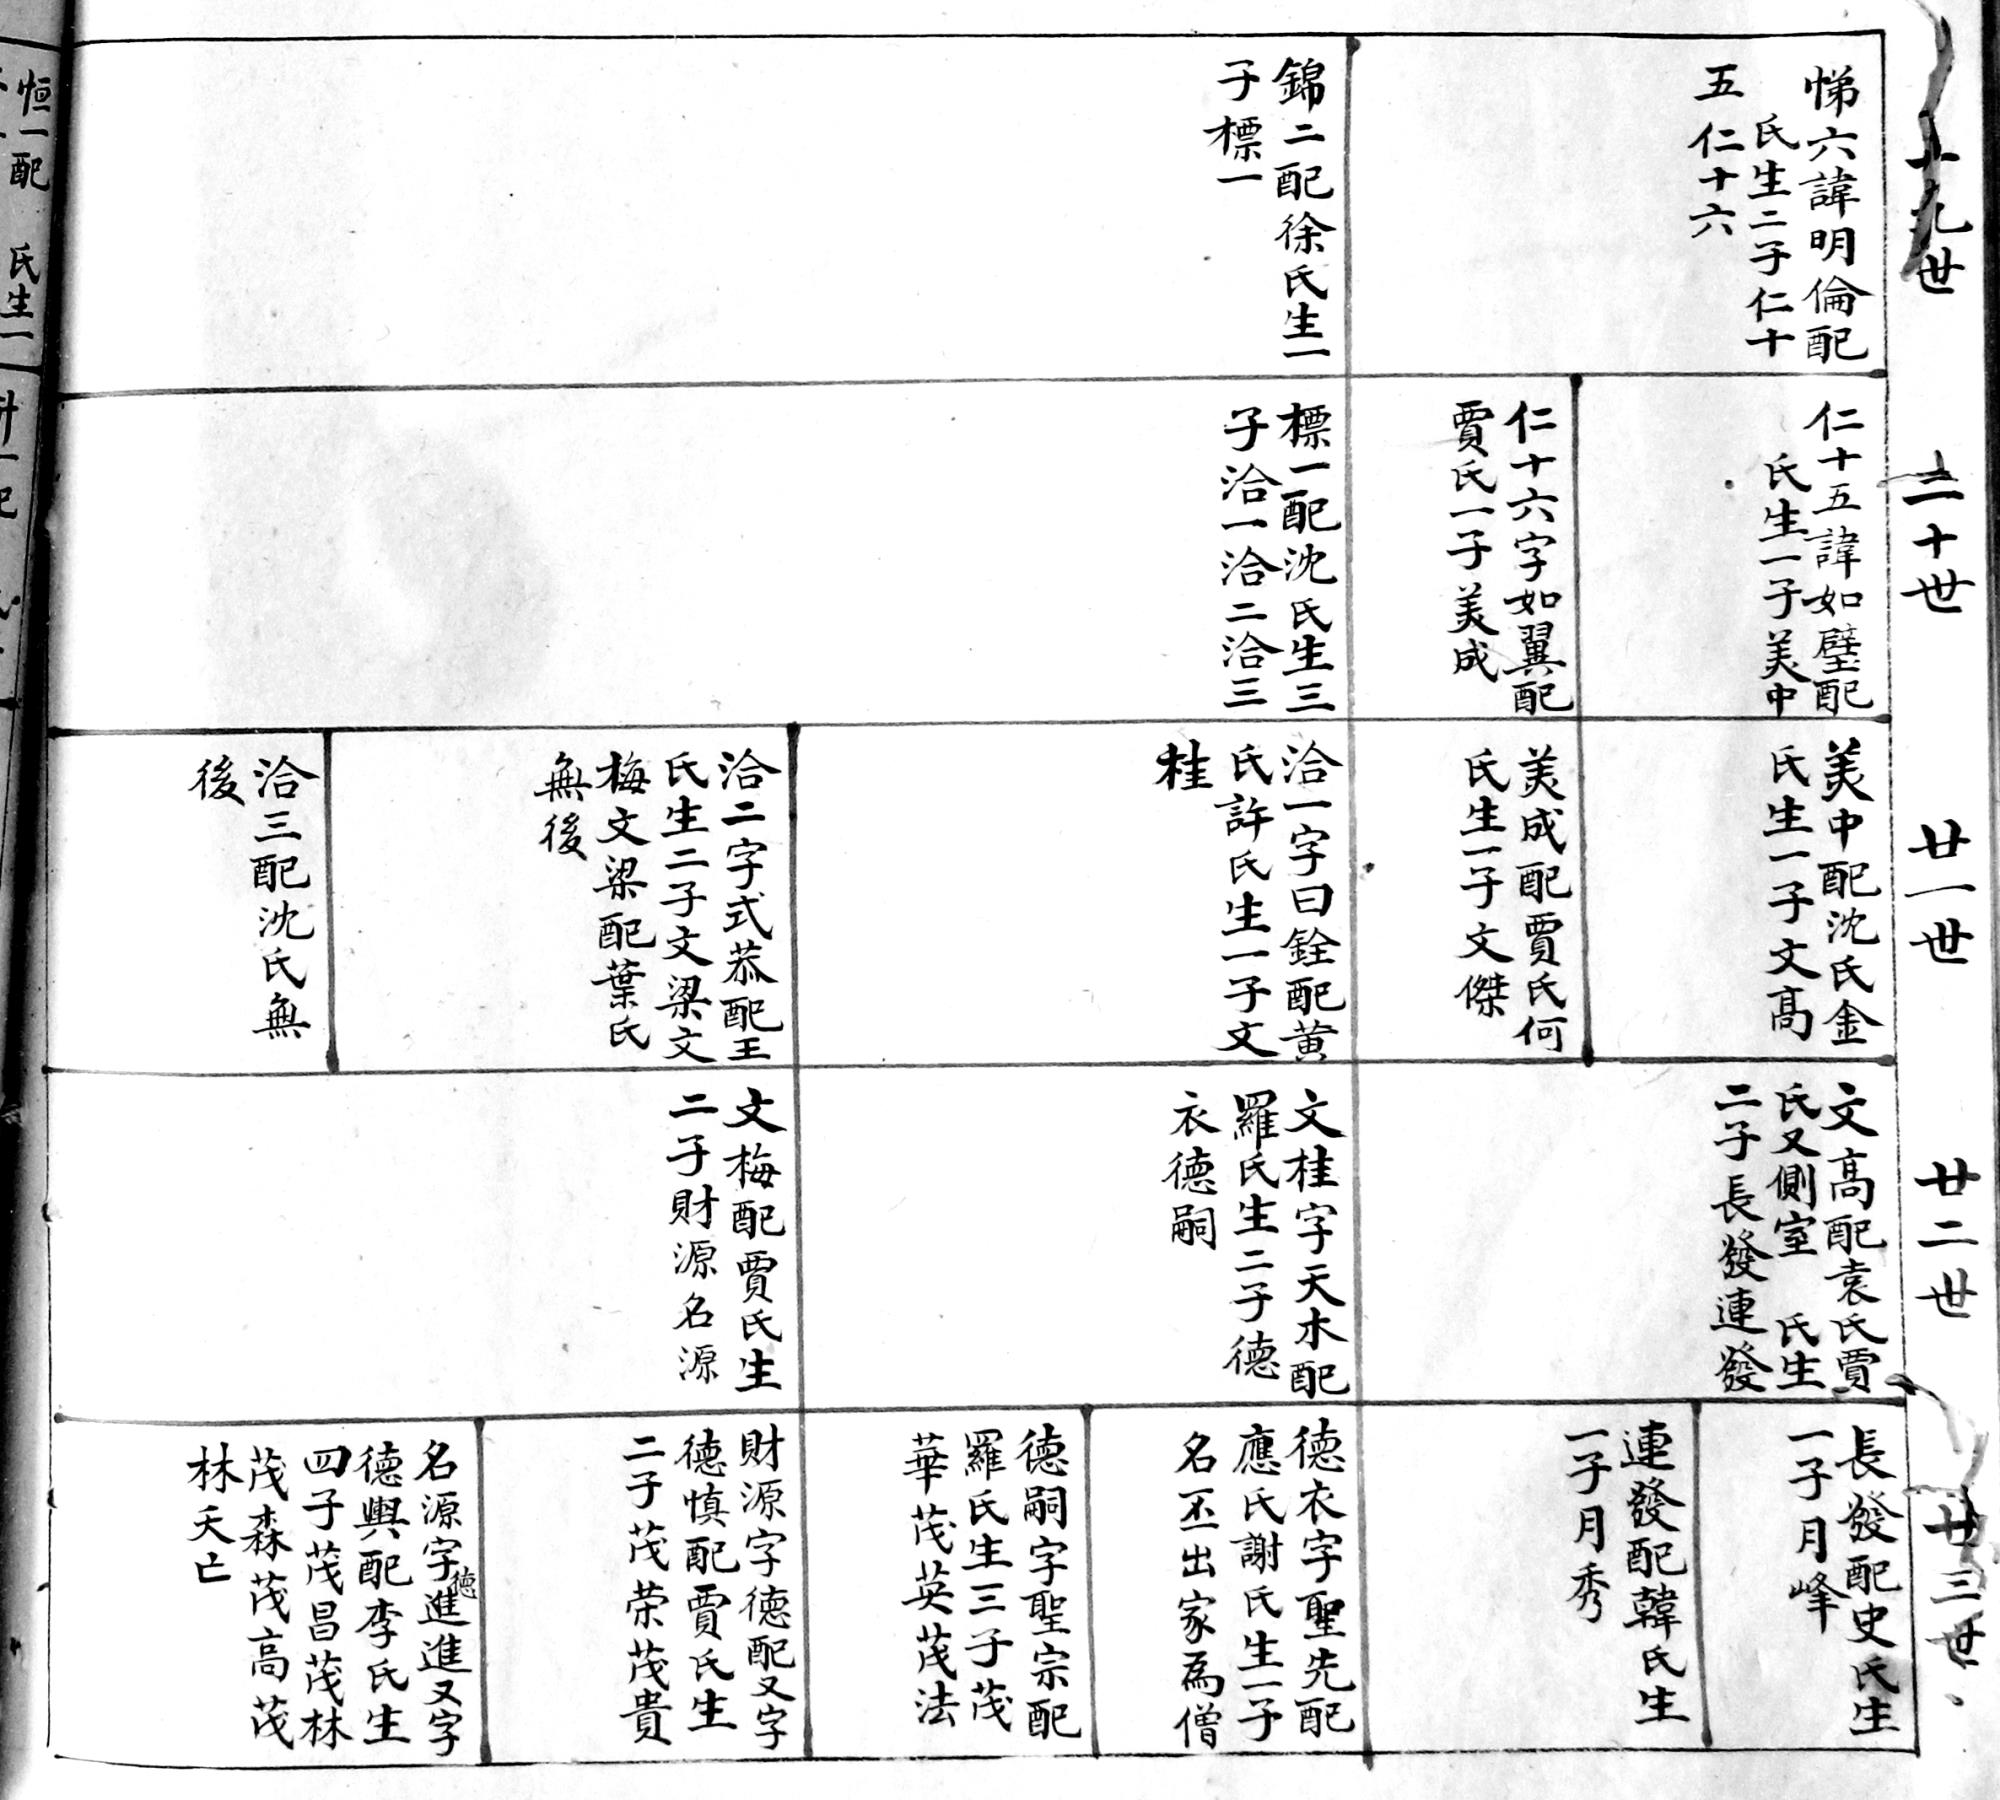 十九世
悌六諱明倫配
氏生二子仁十
五 仁十六
錦二配徐氏生一
子標一
二十世
仁十五諱如璧配
氏生一子美中
仁十六字如翼配
賈氏一子美成
標一配沈氏生三
子洽一洽二洽三
廿一世
美中配沈氏金
氏生一子文高
美成配賈氏何
氏生一子文傑
洽一字曰銓配黄
氏許氏生一子文
桂
洽二字式恭配王
氏生二子文梁文
梅文梁配葉氏
無後
洽三配沈氏無
後
廿二世
文高配袁氏賈
氏又側室 氏生
二子長發連發
文桂字天木配
羅氏生二子德
衣德嗣
文梅配賈氏生
二子財源名源
廿三世
長發配史氏生
一子月峰
連發配韓氏生
一子月秀
德衣字聖先配
應氏謝氏生一子
名丕出家為僧
德嗣字聖宗配
羅氏生三子茂
華茂英茂法
財源字德配又字
德慎配賈氏生
二子茂荣茂貴
名源字德進進又字
德興配李氏生
四子茂昌茂林
茂森茂高茂
林夭亡
恒一配 氏生一